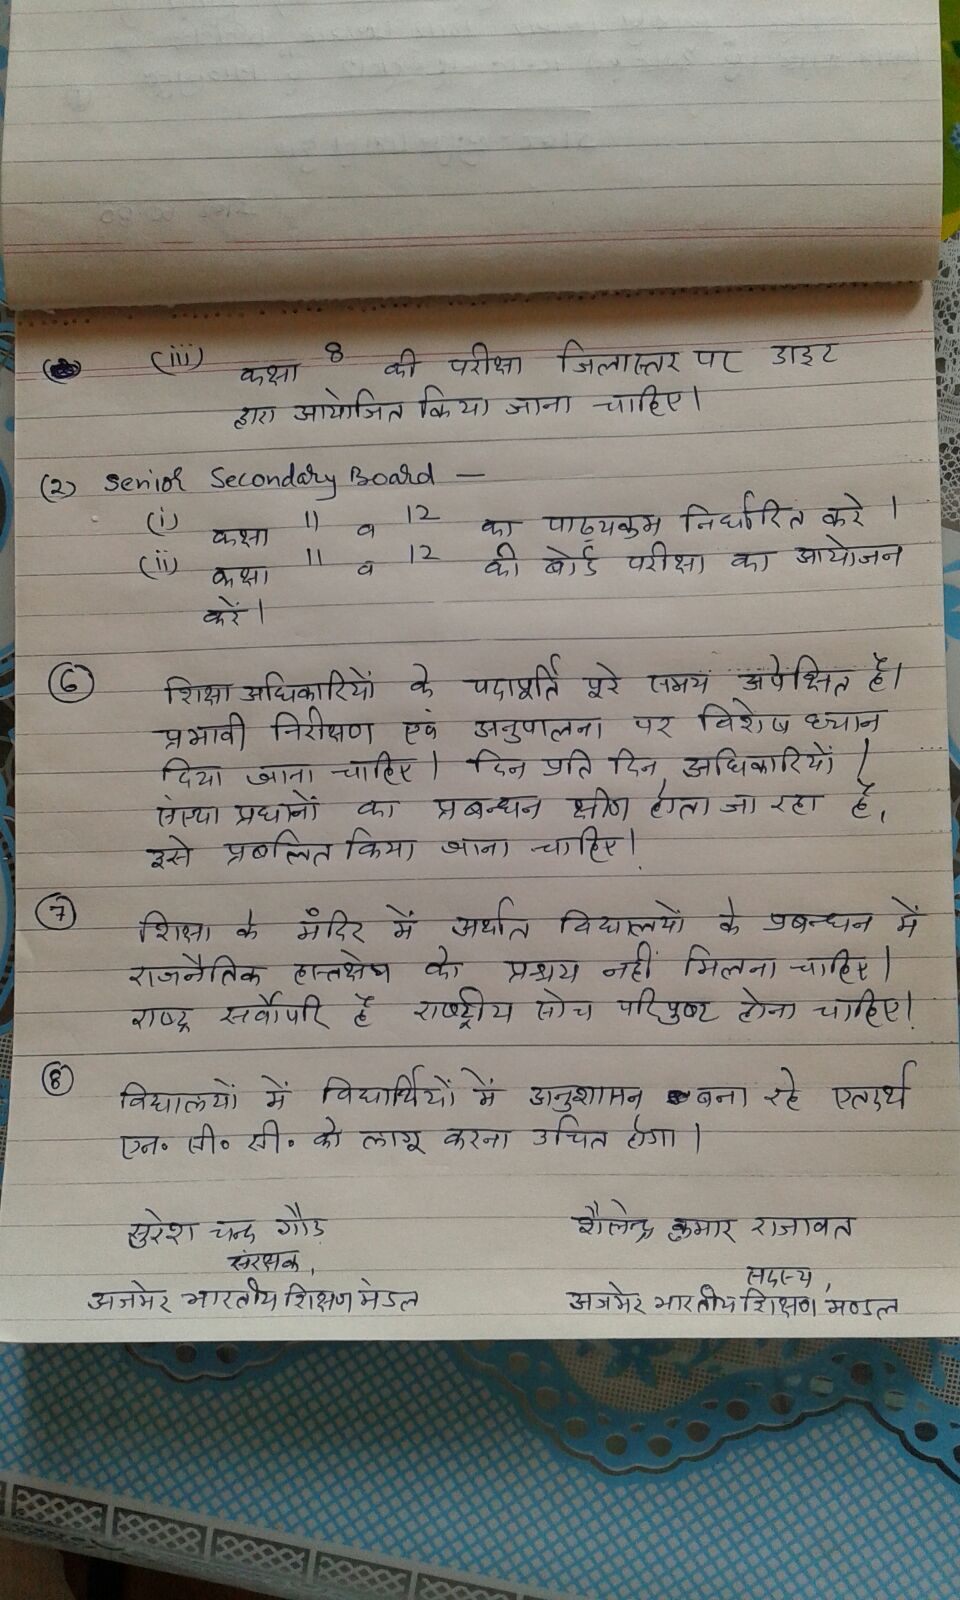 (iii) कक्षा 8 की परीक्षा जिलास्तर पर डाइट
द्वारा आयोजित किया जाना चाहिए।
(2) Senior Secondary Board —
(i) कक्षा 11 व 12 का पाठ्यक्रम निर्धारित करे।
(ii) कक्षा 11 व 12 की बोर्ड परीक्षा का आयोजन
करें।
(6) शिक्षा अधिकारियों के पदापूर्ति पूरे समय अपेक्षित है।
प्रभावी निरीक्षण एवं अनुपालना पर विशेष ध्यान
दिया जाना चाहिए। दिन प्रति दिन अधिकारियों /
संस्था प्रधानों का प्रबन्धन क्षीण होता जा रहा है,
इसे प्रबलित किया जाना चाहिए।
(7) शिक्षा के मंदिर में अर्थात विद्यालयों के प्रबन्धन में
राजनैतिक हास्तक्षेप को प्रश्रय नहीं मिलना चाहिए।
राष्ट्र सर्वोपरि है राष्ट्रीय सोच परिपुष्ट होना चाहिए।
(8) विद्यालयों में विद्यार्थियों में अनुशासन बना रहे एतदर्थ
एन॰ सी॰ सी॰ को लागू करना उचित होगा।
सुरेश चन्द्र गौड़ शैलेन्द्र कुमार राजावत
संरक्षक, सदस्य,
अजमेर भारतीय शिक्षण मंडल अजमेर भारतीय शिक्षण मण्डल